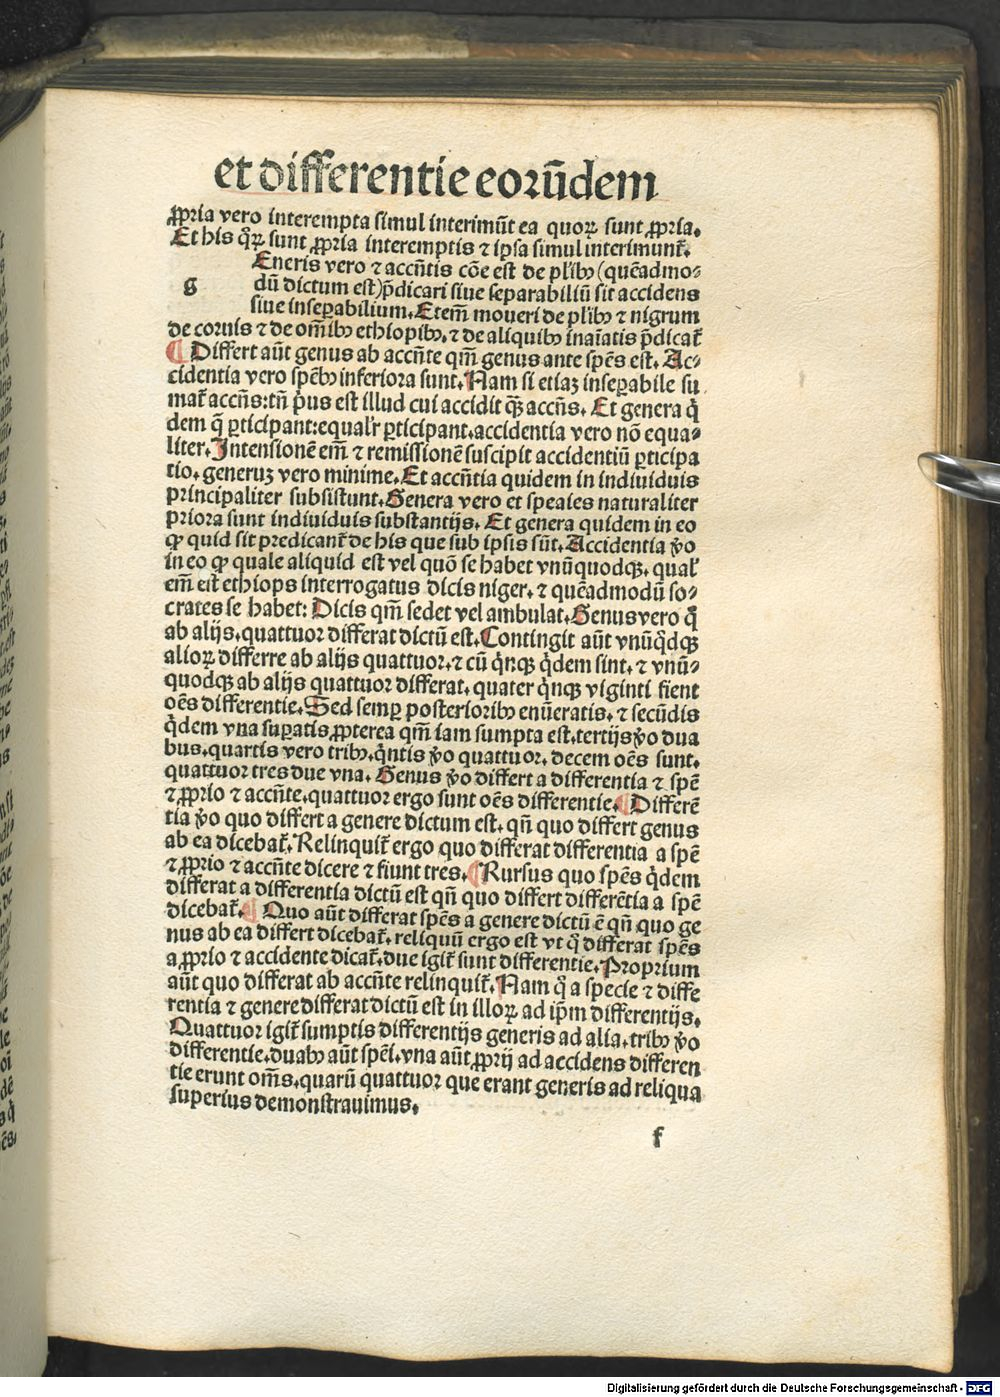 et differentie eorūdem
ꝓpria vero interempta simul interimūt ea quoꝝ sunt ꝓpria.
Et his qͦꝝ sunt ꝓpria interemptis ⁊ ipsa simul interimunt᷑.
Eneris vero ⁊ accn̄tis cōe est de pl'ibꝫ (quēadmo⸗
g dū dictum est) p̄dicari siue separabiliū sit accidens
siue insepabilium. Etem̄ moueri de pl'ibꝫ ⁊ nigrum
de coruis ⁊ de om̄ibꝫ ethiopibꝫ. ⁊ de aliquibꝫ inaīatis p̄dicat᷑
¶ Differt aūt genus ab accn̄te qm̄ genus ante spēs est. Ac⸗
cidentia vero spēbꝫ inferiora sunt. Nam si etiaꝫ inseꝑabile su
mat᷑ accn̄s: tn̄ pͥus est illud cui accidit qꝫ accn̄s. Et genera qͥ
dem q̄ ꝑticipant: equal'r ꝑticipant. accidentia vero nō equa⸗
liter. Intensionē em̄ ⁊ remissionē suscipit accidentiū ꝑticipa
tio. generuꝫ vero minime. Et accn̄tia quidem in indiuiduis
principaliter subsistunt. Genera vero et speaies naturaliter
priora sunt indiuiduis substantijs. Et genera quidem in eo
ꝙ quid sit predicant᷑ de his que sub ipsis sūt. Accidentia ꝟo
in eo ꝙ quale aliquid est vel quō se habet vnūquodqꝫ. qual'
em̄ est ethiops interrogatus dicis niger. ⁊ quēadmodū so⸗
crates se habet: Dicis qm̄ sedet vel ambulat. Genus vero qͦ
ab alijs. quattuor differat dictū est. Contingit aūt vnūqͦdqꝫ
alioꝝ differre ab alijs quattuor. ⁊ cū qͥnqꝫ qͥdem sint. ⁊ vnū⸗
quodqꝫ ab alijs quattuor differat. quater qͥnqꝫ viginti fient
oēs differentie. Sed semꝑ posterioribꝫ enūeratis. ⁊ secūdis
qͥdem vna suꝑatis ꝓpterea qm̄ iam sumpta est. tertijs ꝟo dua
bus. quartis vero tribꝫ. qͥntis ꝟo quattuor. decem oēs sunt.
quattuor tres due vna. Genus ꝟo differt a differentia ⁊ spē
⁊ ꝓprio ⁊ accn̄te. quattuor ergo sunt oēs differentie. ¶ Differē
tia ꝟo quo differt a genere dictum est. qn̄ quo differt genus
ab ea dicebat᷑. Relinquit᷑ ergo quo differat differentia a spē
⁊ ꝓprio ⁊ accn̄te dicere ⁊ fiunt tres. ¶ Rursus quo spēs qͥdem
differat a differentia dictū est qn̄ quo differt differētia a spē
dicebat᷑. ¶ Quo aūt differat spēs a genere dictū ē qn̄ quo ge
nus ab ea differt dicebat᷑. reliquū ergo est vt qͦ differat spēs
a ꝓprio ⁊ accidente dicat᷑. due igit᷑ sunt differentie. Proprium
aūt quo differat ab accn̄te relinquit᷑. Nam qͦ a specie ⁊ diffe
rentia ⁊ genere differat dictū est in illoꝝ ad ip̄m differentijs.
Quattuor igit᷑ sumptis differentijs generis ad alia. tribꝫ ꝟo
differentie. duabꝫ aūt spēi. vna aūt ꝓprij ad accidens differen
tie erunt om̄s. quarū quattuor que erant generis ad reliqua
superius demonstrauimus.
f
Digitalisierung gefördert durch die Deutsche Forschungsgemeinschaft - DFG